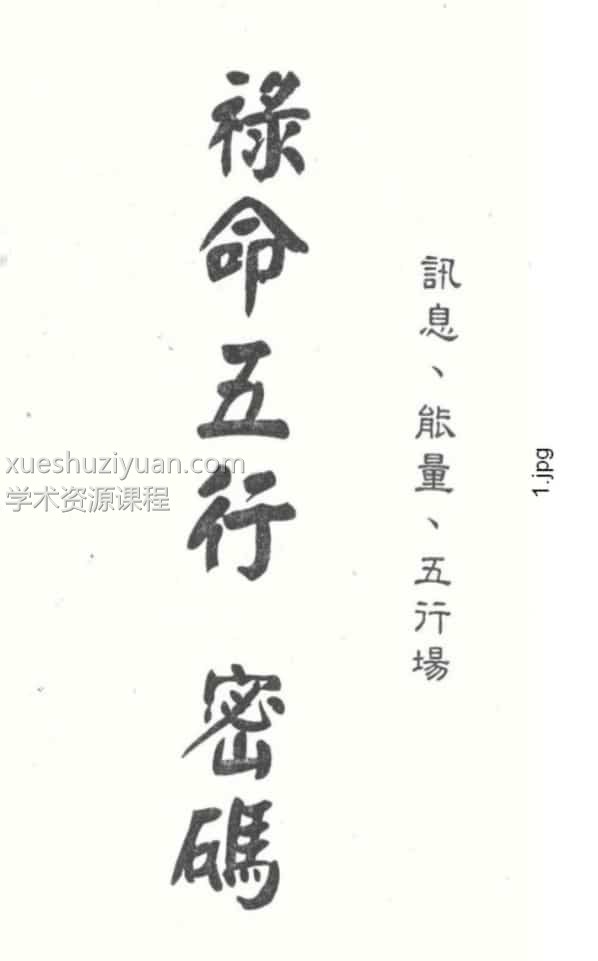 訊息、能量、五行場
祿命五行 密碼
xueshuziyuan.com
学术资源课程
1.jpg